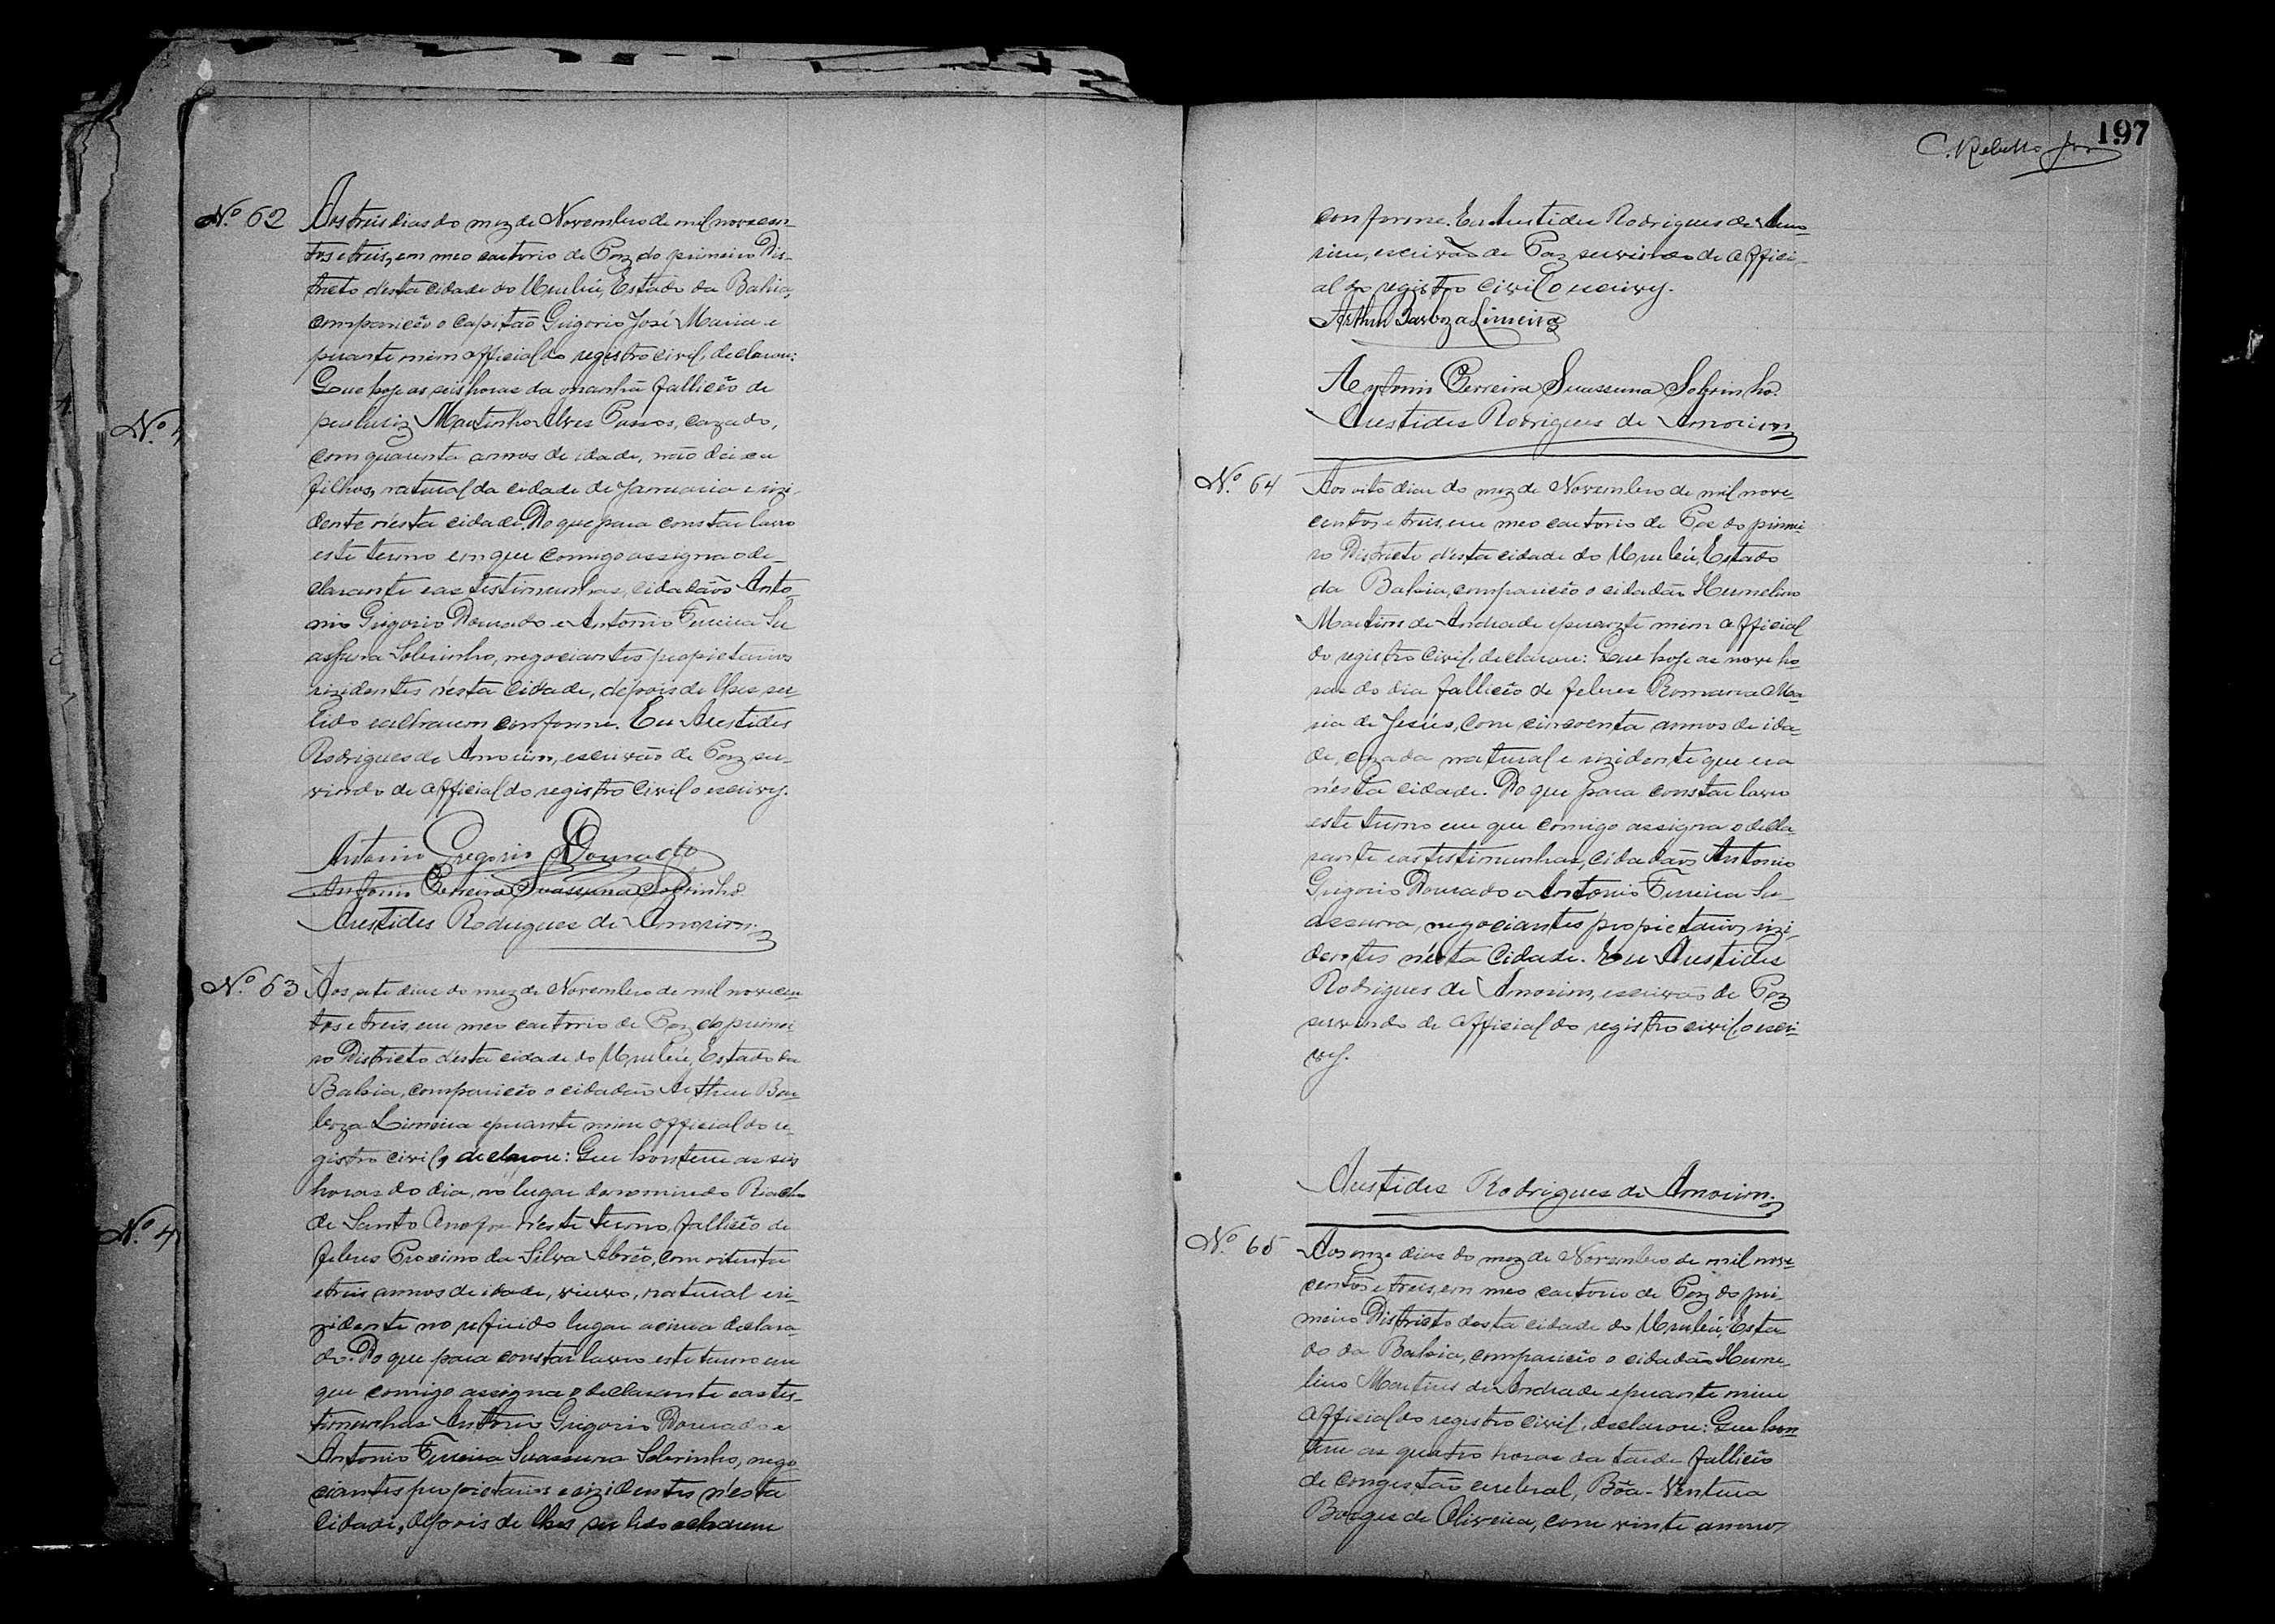 Nº 62 Aos treis dias do mez de Novembro de mil novecen-
tos e treis, em meo cartorio de Paz do primeiro Dis-
tricto d'esta cidade do Urubú, Estado da Bahia,
compareceo o Capitão Grigorio José Maria e
perante mim official do registro civil, declarou:
Que hoje as seis horas da manhã falleceo de
Martinho Alves Passos, cazado,
com quarenta annos de idade, não deixou
filhos, natural da cidade de Januaria e rizi-
dente n'esta cidade. Do que para constar lavro
este termo em que comigo assigna o de-
clarante e as testimunhas, cidadãos Anto-
nio Grigorio Dourado e Antonio Ferreira Su
assuna Sobrinho, negociantes propietarios
rizidentes n'esta cidade, depois de lhes ser
lido e acharem conforme. Eu Arestides
Rodrigues de Amorim, escrivão de Paz ser-
vindo de official do registro civil o escrivy.
Antonio Gregorio Dourado
Antonio Ferreira Suassuna Sobrinho
Arestides Rodrigues de Amorim.
Nº 63 Aos sete dias do mez de Novembro de mil novecen
tos e treis, em meo cartorio de Paz do primei
ro Districto d'esta cidade do Urubú, Estado da
Bahia, compareceo o cidadão Arthur Bar
boza Limeira e perante mim official do re-
gistro civil, declarou: Que hontem as seis
horas do dia, no lugar denominado Riacho
de Santo Onofre n'este termo, falleceo de
febres da Silva Abrêo, com oitenta
e treis annos de idade, viuvo, natural e ri-
zidente no referido lugar acima declara-
do. Do que para constar lavro este termo em
que comigo assigna o declarante e as tes-
timunhas Antonio Grigorio Dourado e
Antonio Ferreira Suassuna Sobrinho, nego
ciantes propietarios e rizidentes n'esta
cidade, depois de lhes ser lido acharem
197
C. Rebello Jor
conforme. Eu Arestides Rodrigues de Amo
rim, escrivão de Paz servindo de offici-
al do registro civil o escrivy.
Arthur Barboza Limeira
Antonio Ferreira Suassuna Sobrinho.
Arestides Rodrigues de Amorim
Nº 64 Aos oito dias do mez de Novembro de mil nove-
centos e treis, em meo cartorio de Paz do primei
ro Districto d'esta cidade do Urubú, Estado
da Bahia, compareceo o cidadão Hermelino
Martins de Andrade e perante mim official
do registro civil, declarou: Que hoje as nove ho
ras do dia falleceo de febres Romana Ma-
ria de Jesús, com cincoenta annos de ida-
de, cazada natural e rizidente que era
n'esta cidade. Do que para constar lavro
este termo em que comigo assigna o decla-
rante e as testimunhas, cidadãos Antonio
Grigorio Dourado e Antonio Ferreira Su-
assuna, negociantes propietarios, rizi-
dentes n'esta cidade. Eu Arestides
Rodrigues de Amorim, escrivão de Paz
servindo de official do registro civil o escri-
vy.
Arestides Rodrigues de Amorim.
Nº 65 Aos onze dias do mez de Novembro de mil nove-
centos e treis, em meo cartorio de Paz do pri-
meiro Districto desta cidade do Urubú, Esta
do da Bahia, compareceo o cidadão Herme-
lino Martins de Andrade e perante mim
official do registro civil, declarou: Que hon
tem as quatro horas da tarde falleceo
de congestão cerebral, Bôa-Ventura
Borges de Oliveira, com vinte annos
Nº 4
Nº 4